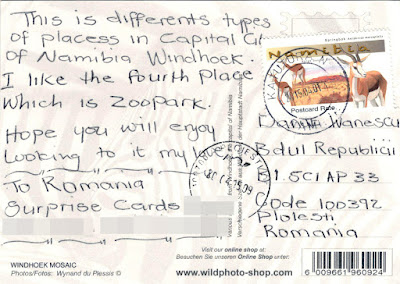 This is differents types
of placess in Capital Cit
of Namibia Windhoek.
I like the fourth place
which is zoopark.
Hope you will enjoy
Looking to it my love
To Romania
Surprise Cards
Namibia
Postcard Rate
Bdul Republicii
Bl. 5C1 AP 33
Code 100392
Ploiesti
Romania
WINDHOEK MOSAIC
Photos/Fotos: Wynand du Plessis ©
Visit our online shop at:
Besuchen Sie unseren Online Shop unter:
www.wildphoto-shop.com
6 009661 960924